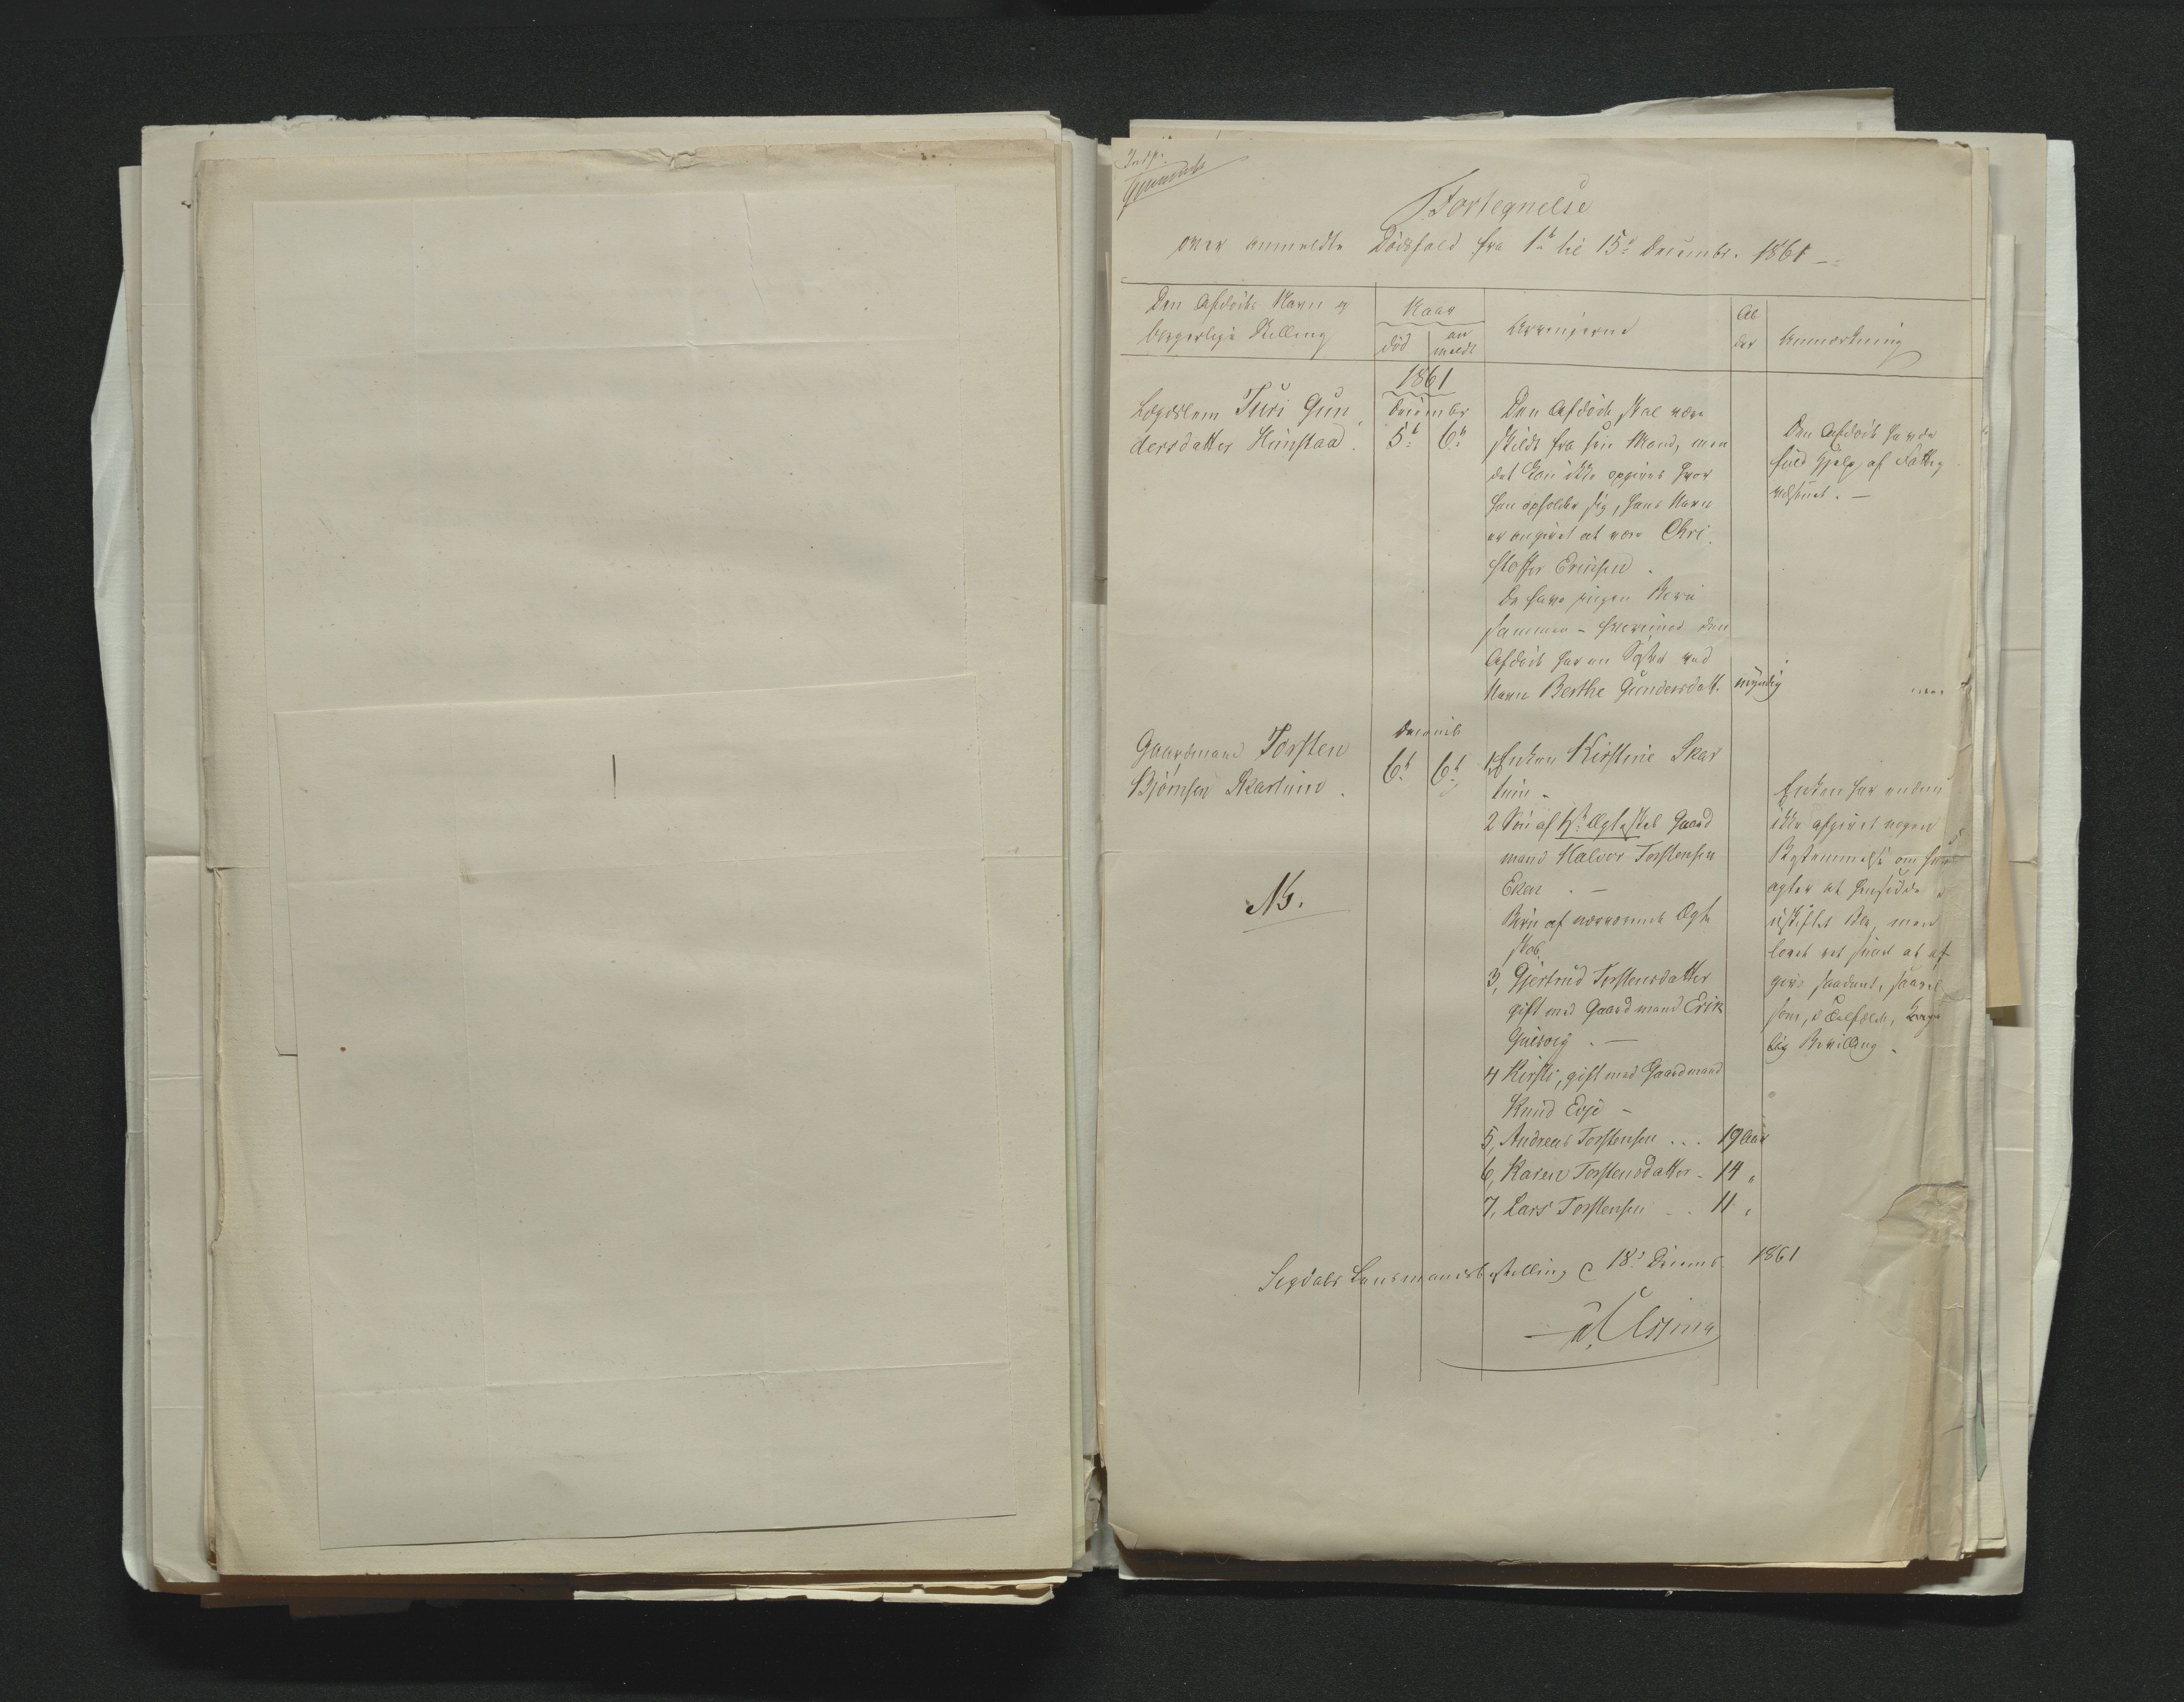 Fortegnelse
over anmeldte Dødsfald fra 1ste til 15de Decembr. 1861 –
Den Afdødes Navn og
borgerlige Stilling
Naar
død
an
meldt
Arvingerne
Al
der
Anmærkning
1861
Lægdslem Turi Gun
dersdatter Hunstad.
Decembr
5te 6te
Den Afdøde skal være
skildt fra sin Mand, men
det kan ikke opgives hvor
han opholder sig, hans Navn
er angivet at være Chri
stoffer Ericksen.
De have ingen Børn
sammen – hvorimod den
Afdøde har en Søster ved
Navn Berthe Gundersdatt.
myndig
Den Afdøde havde
fuld Hjelp af Fattig
væsenet. –
Gaardmand Torsten
Bjørnsen Skartum.
Decemb
6te 6te
1 Enken Kirstine Skar
tum –
2 Søn af 1ste Ægteskab Gaard
mand Halvor Torstensen
Eken . –
Børn af nærværende Ægte
skab
3, Gjertrud Torstensdatter
gift med Gaardmand Erik
4 Kirsti, gift med Gaardmand
Knud Evje –
5, Andreas Torstensen ... 19 Aar
6, Karen Torstensdatter - 14 "
7, Lars Torstensen - . 11 "
Enken har endnu
ikke afgivet nogen
Bestemmelse om hun
agter at hensidde i
uskiftet Bo, men
lovet ved senere at af
give saadant, saavel
som, i Tilfælde, Konge
lig Bevilling.
NB.
Sigdals Lensmandsbestilling d 18de Decemb 1861